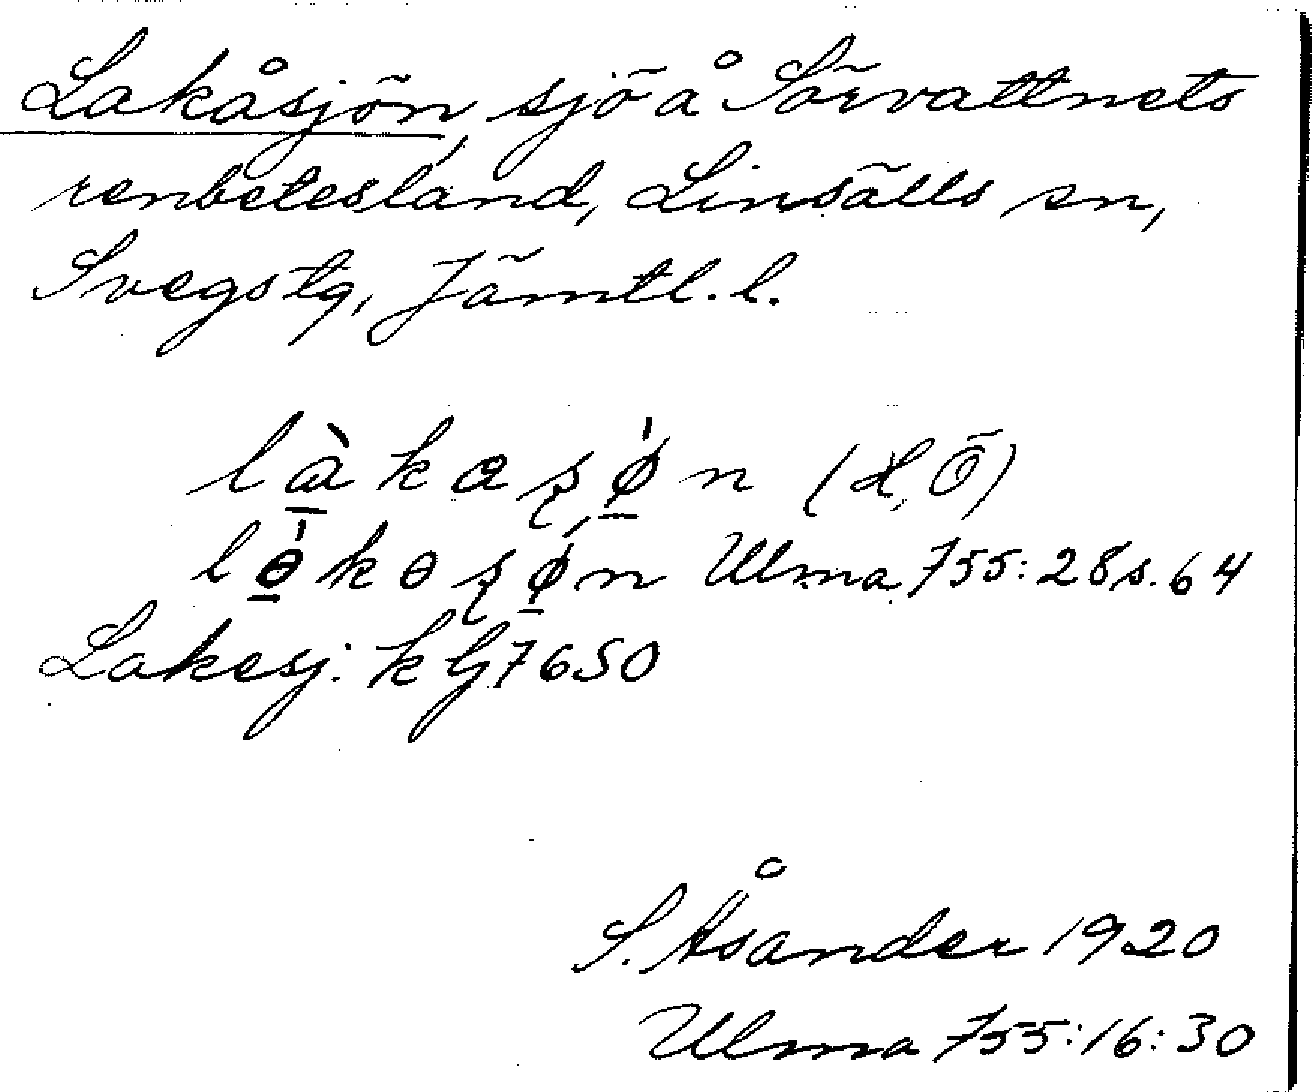 Lakåsjön, sjö å Sörvattnets
renbetesland, Linsälls sn,
Svegs tg, Jämtl. l.
(H, Ö)
Ulma 755:28 s. 64
Lakesj: k Gj 7650
S. Åsander 1920
Ulma 755:16:30